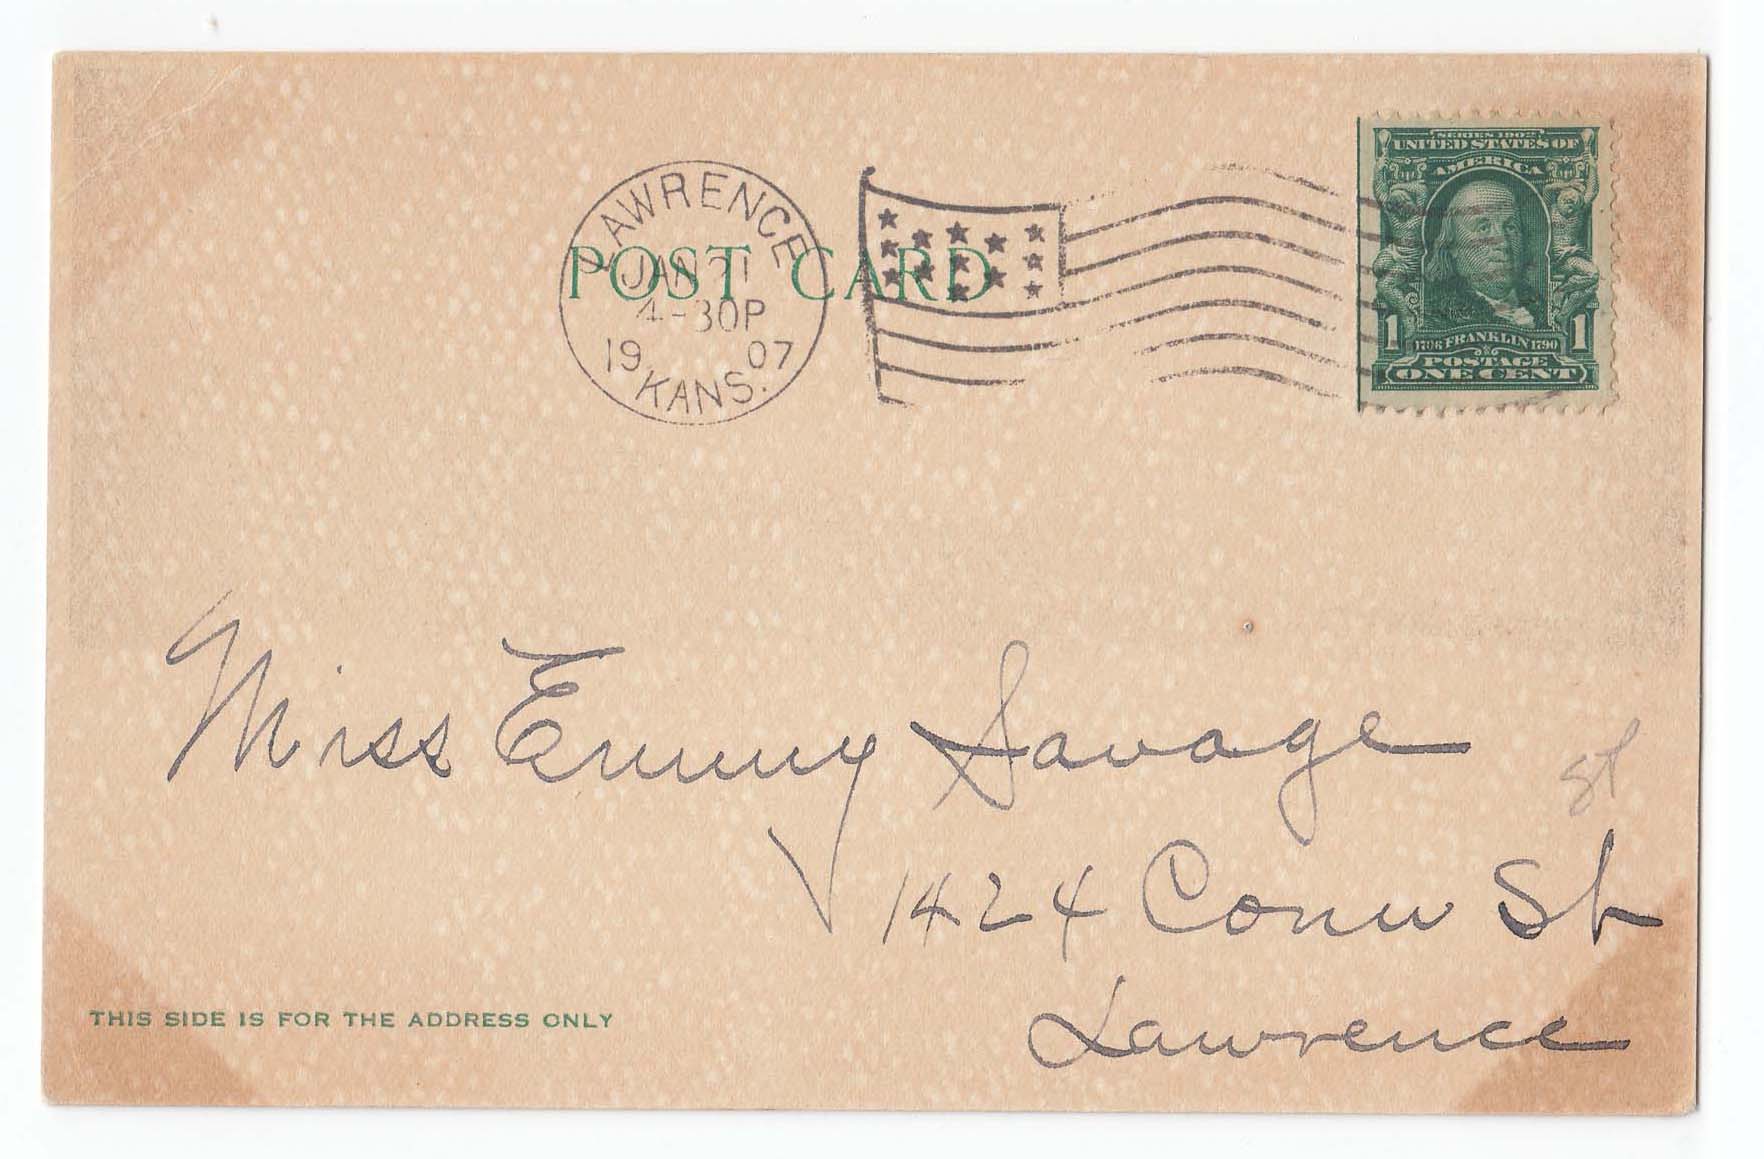 LAWRENCE
POST CARD
JAN
4-30P
19 07
KANS.
SERIES 1902
UNITED STATES OF
AMERICA
1706 FRANKLIN 1790
1 1
POSTAGE
ONE CENT
Miss Emmy Savage
st
1424 Conn St
Lawrence
THIS SIDE IS FOR THE ADDRESS ONLY